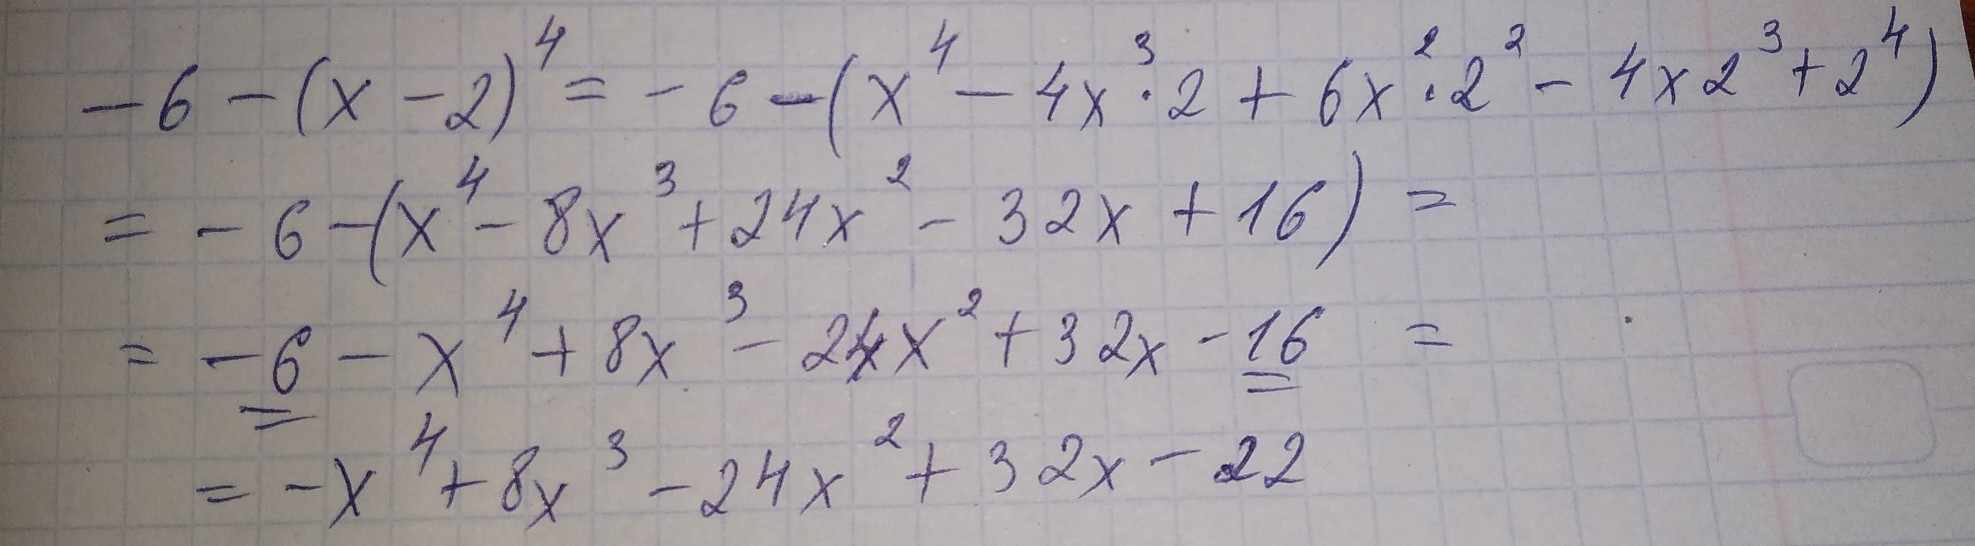 -6-(x-2)⁴=-6-(x⁴-4x³·2+6x²·2²-4x2³+2⁴)
=-6-(x⁴-8x³+24x²-32x+16)=
=-6-x⁴+8x³-24x²+32x-16=
=-x⁴+8x³-24x²+32x-22